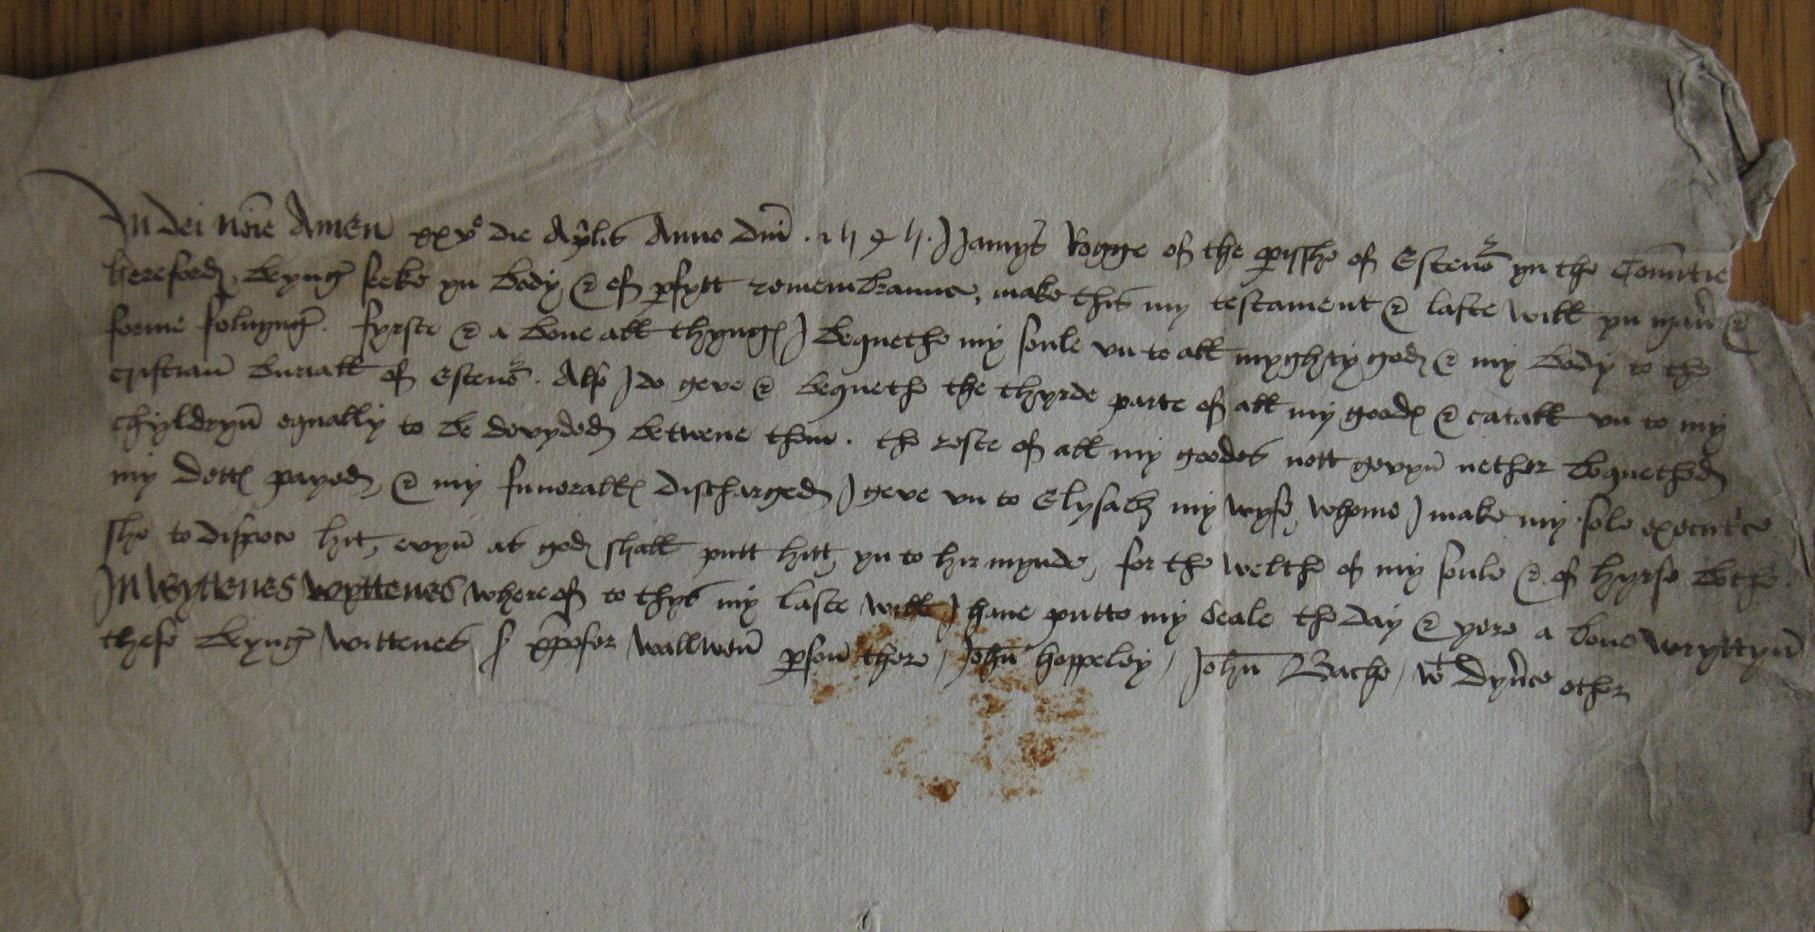 In dei noīe Amen xxvº die Ap̄lis Anno Dn̄i . 1545 . I Jamys Bogge of the p̱isshe of Estenor̄ yn the Comitie
hereford, beyng seeke yn body & of p̱fytt remembraunce, make this my testament & laste will yn man̄ &
forme foluyng. fyrste & a bove all thyng I bequethe my soule un to all myghty god & my body to the
cristian̄ buriall of Estenor̄. Also I do geve & bequethe the thyrde parte of all my good & catall un to my
chyldryn̄ equally to be devyded betwene them. the reste of all my goodes nott gevyn̄ nether bequethed
my dett payed, & my funerall discharged I geve un to Elysabz my wyfe, whome I make my sole executce
she to dispoce hit, evyn̄ as god shall putt hitt yn to hir mynde, for the welthe of my soule & of hyrse bothe.
In wyttenes wyttenes whereof to thys my laste will I have putto my seale the day & yere a bove wryttyn̄
these beyng wittenes S x̄pofer Wallwen̄ p̱son̄ there, John̄ hoppeley, John̄ Bache, wt dyv̄ce other